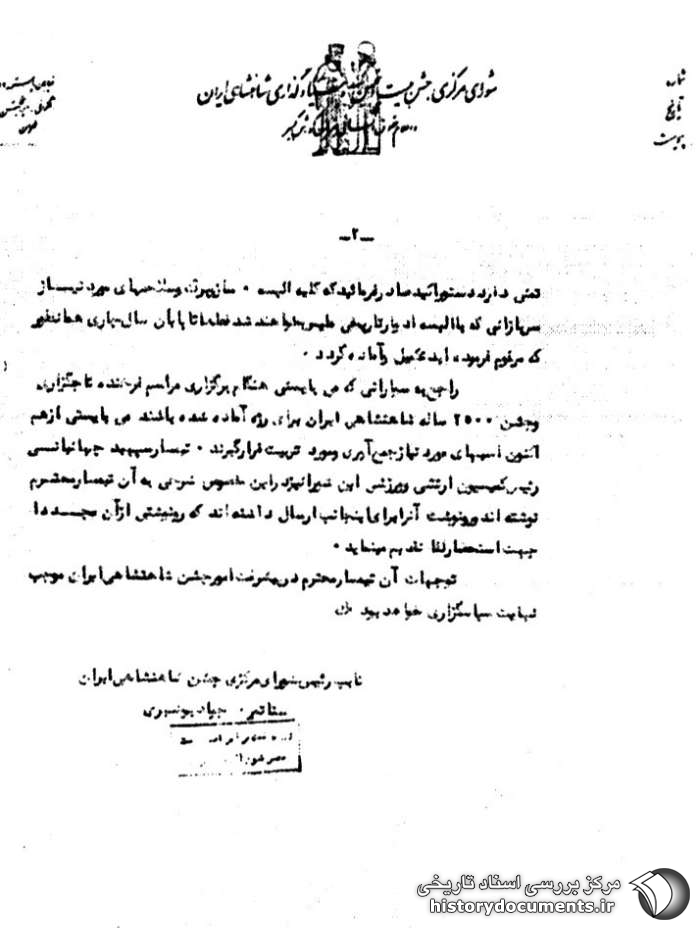 شماره
تاریخ
پیوست
شورای مرکزی جشن بنیانگذاری شاهنشاهی ایران
تهران
ـ۲ـ
دارد دستور اکید صادر فرمائید که کلیه البسه ۰ سازوبرگ و سلاحهای مورد نیاز
سربازانی که با البسه ادوار تاریخی ملبس خواهند شد قطعا تا پایان سال جاری همانطور
که مرقوم فرموده اید تکمیل و آماده گردد ۰
راجع به سوارانی که می بایستی هنگام برگزاری مراسم فرخنده تاجگزاری
وجشن ۲۵۰۰ ساله شاهنشاهی ایران برای رژه آماده شده باشند می بایستی از هم
اکنون اسبهای مورد نیاز جمع آوری ومورد تربیت قرارگیرند ۰ تیمسار سپهبد جهانبانی
رئیس کمیسیون ارتشی وورزشی این شورا نیز در این خصوص شرحی به آن تیمسار محترم
نوشته اند ورونوشت آنرا برای اینجانب ارسال داشته اند که رونوشتی از آن مجددا
جهت استحضار لفا تقدیم مینماید ۰
توجهات آن تیمسار محترم در پیشرفت امور جشن شاهنشاهی ایران موجب
نهایت سپاسگزاری خواهد بود
نایب رئیس شورای مرکزی جشن شاهنشاهی ایران
سناتور ۰ جواد بوشهری
مرکز بررسی اسناد تاریخی
historydocuments.ir